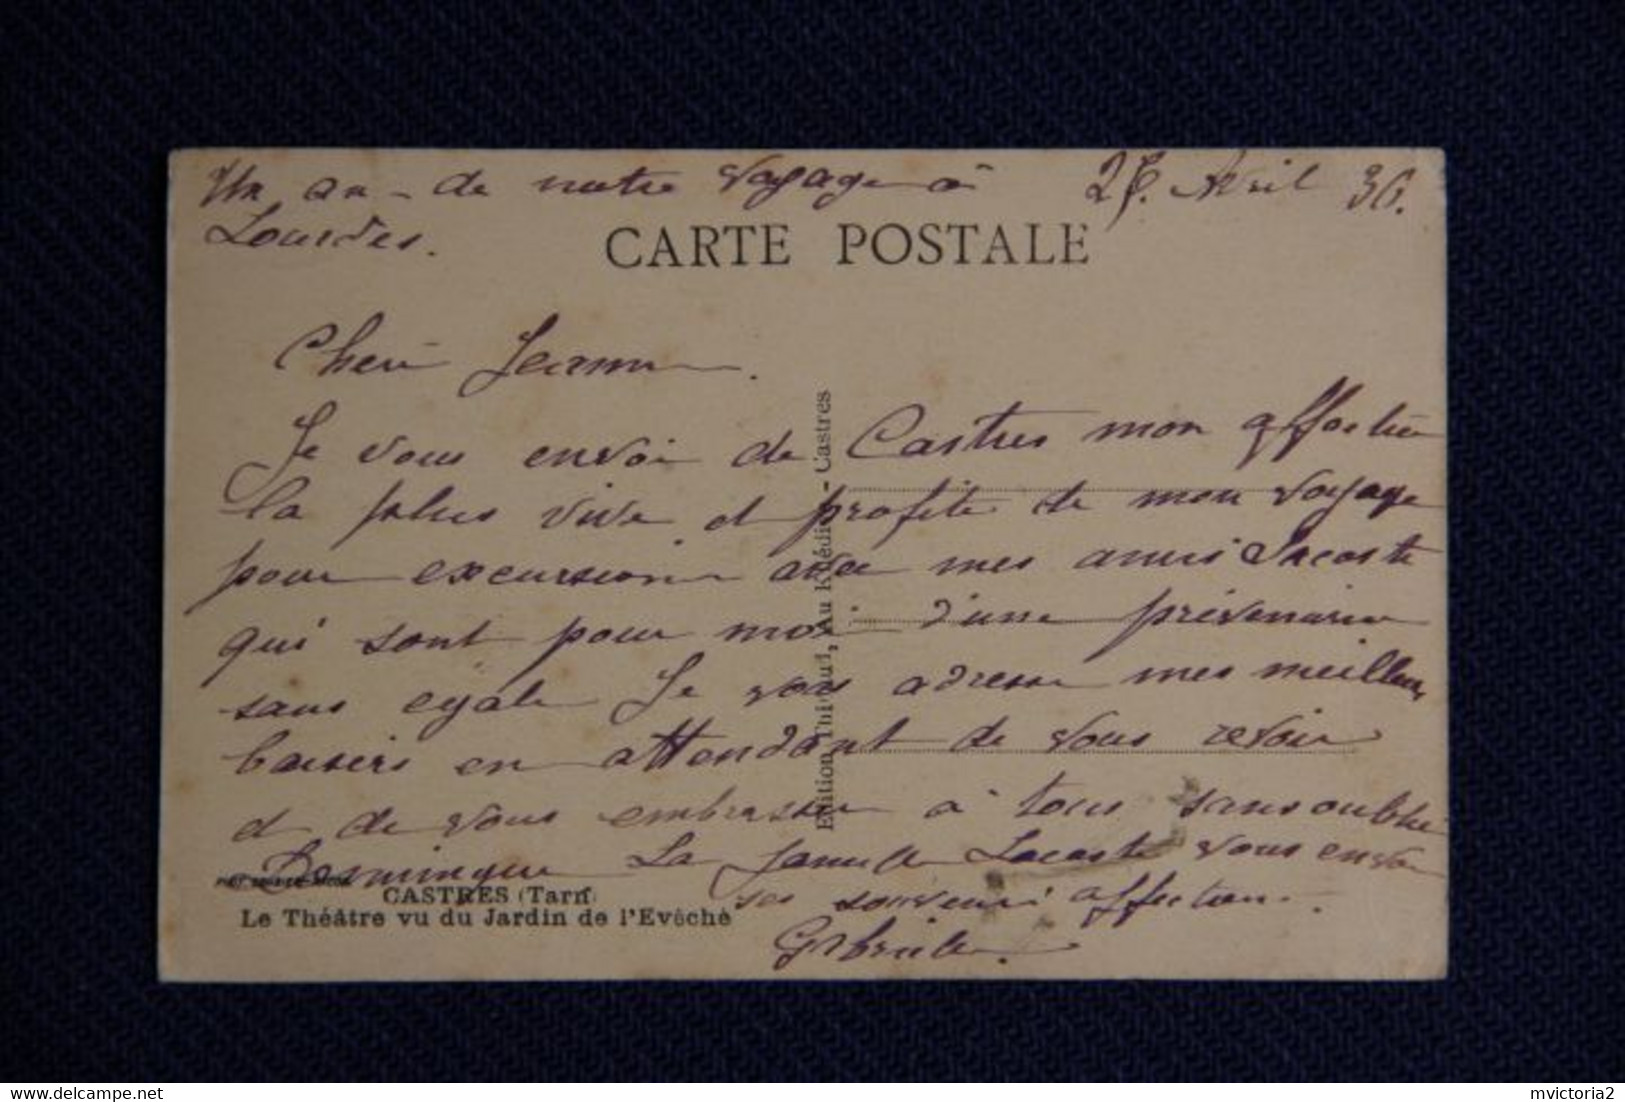 Un an - de notre voyage à
Lourdes.
25. Avril 30.
CARTE POSTALE
Cheri Jeanne.
Je vous envoi de Castres mon affection
la plus vive et profite de mon voyage
pour excursionner avec mes amis Lacoste
qui sont pour moi d'une prévenance
sans egale Je vous adresse mes meilleurs
baisers en attendant de vous revoir
et de vous embrasser à tous sans oublier
Dominique La famille Lacoste vous envoi
ses souvenirs affection.
Gabrielle.
Edition Au Krédi - Castres
CASTRES (Tarn)
Le Théâtre vu du Jardin de l'Evêché
mvictoria2